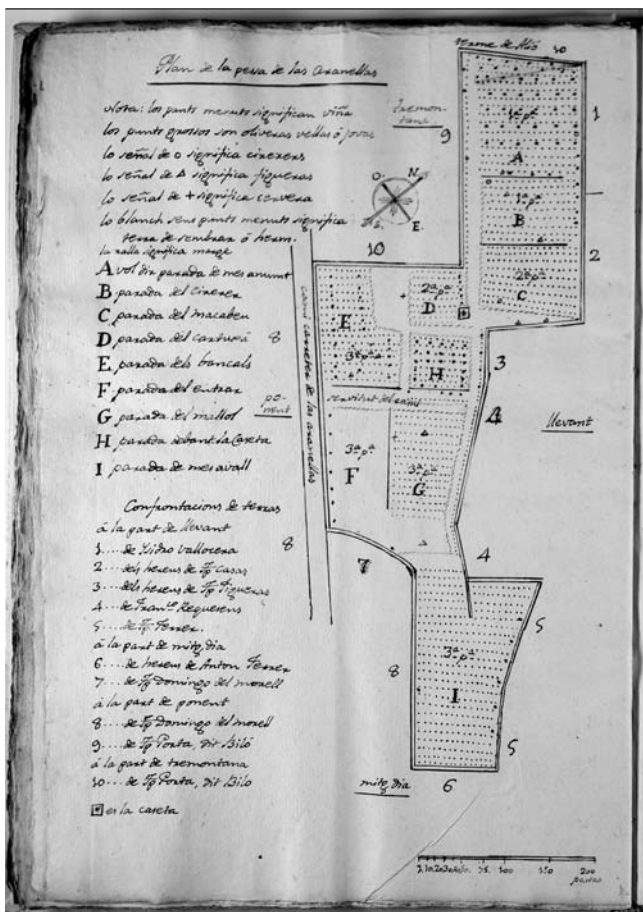 Plan de la pessa de las Aranellas
Nota: los punts menuts significan viña
los punts grossos son oliveras vellas ó jovas
lo señal de o significa cirerers
lo señal de Δ significa figueras
lo señal de + significa cervera
lo blanch sens punts menuts significa
terra de sembrar ó herm.
la ralla significa marge
A vol dir parada de mes amunt
B parada del cirerer
C parada del macabeu
D parada del cartuxá
E parada dels bancals
F parada del entrar
G parada del mallol
H parada debant la Caseta
I parada de mes avall
Confrontacions de terras
á la part de llevant
1 ... de Isidro Vallocera
2 ... dels hereus de Jph Casas
3 ... dels hereus de Jph Figueras
4 ... de Fran.co Reguerens
5 ... de Jph Ferrer.
á la part de mitg dia
6 .... de hereus de Anton Ferrer
7 .... de Jph Domingo del morell
á la part de ponent
8 .... de Jph Domingo del morell
9 .... de Jph Porta, dit Biló
á la part de tremontana
10 ... de Jph Porta, dit Biló
es la caseta
terme de
10
tremontana
9
1
1ª pª
A
O.
N.
S.
E.
1ª pª
B
2
2ª pª
C
10
2ª pª
D
E
3ª pª
H
3
8
camí carreter de las aranellas
ponent
servitut del camí
4
llevant
3ª pª
F
3ª pª
G
8
7
4
5
3ª pª
8
I
5
mitg dia
6
100
150
200
passas